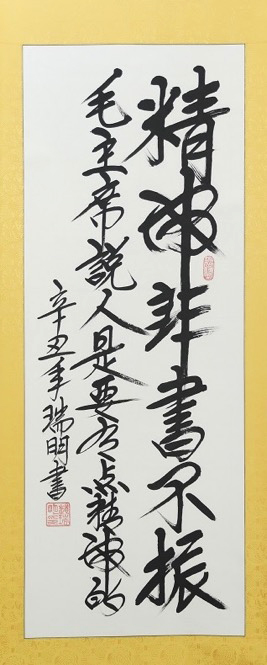 精神非書不振
毛主席説人是要有点精神的
辛丑年瑞明書